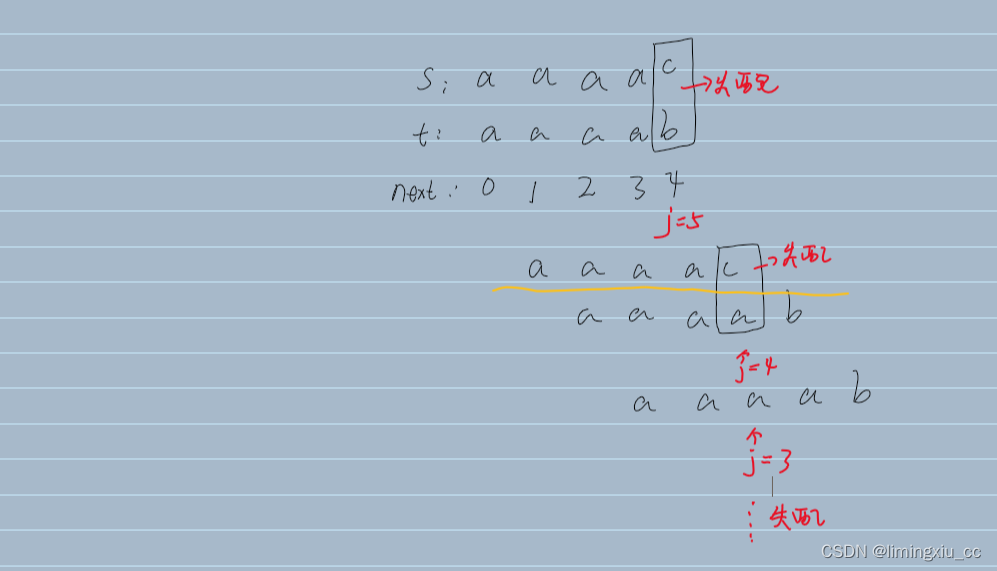 s: a a a a c →失配
t: a a a a b
next: 0 1 2 3 4
j=5
a a a a c →失配
a a a a b
j=4
a a a a b
j=3
失配
CSDN @limingxiu_cc